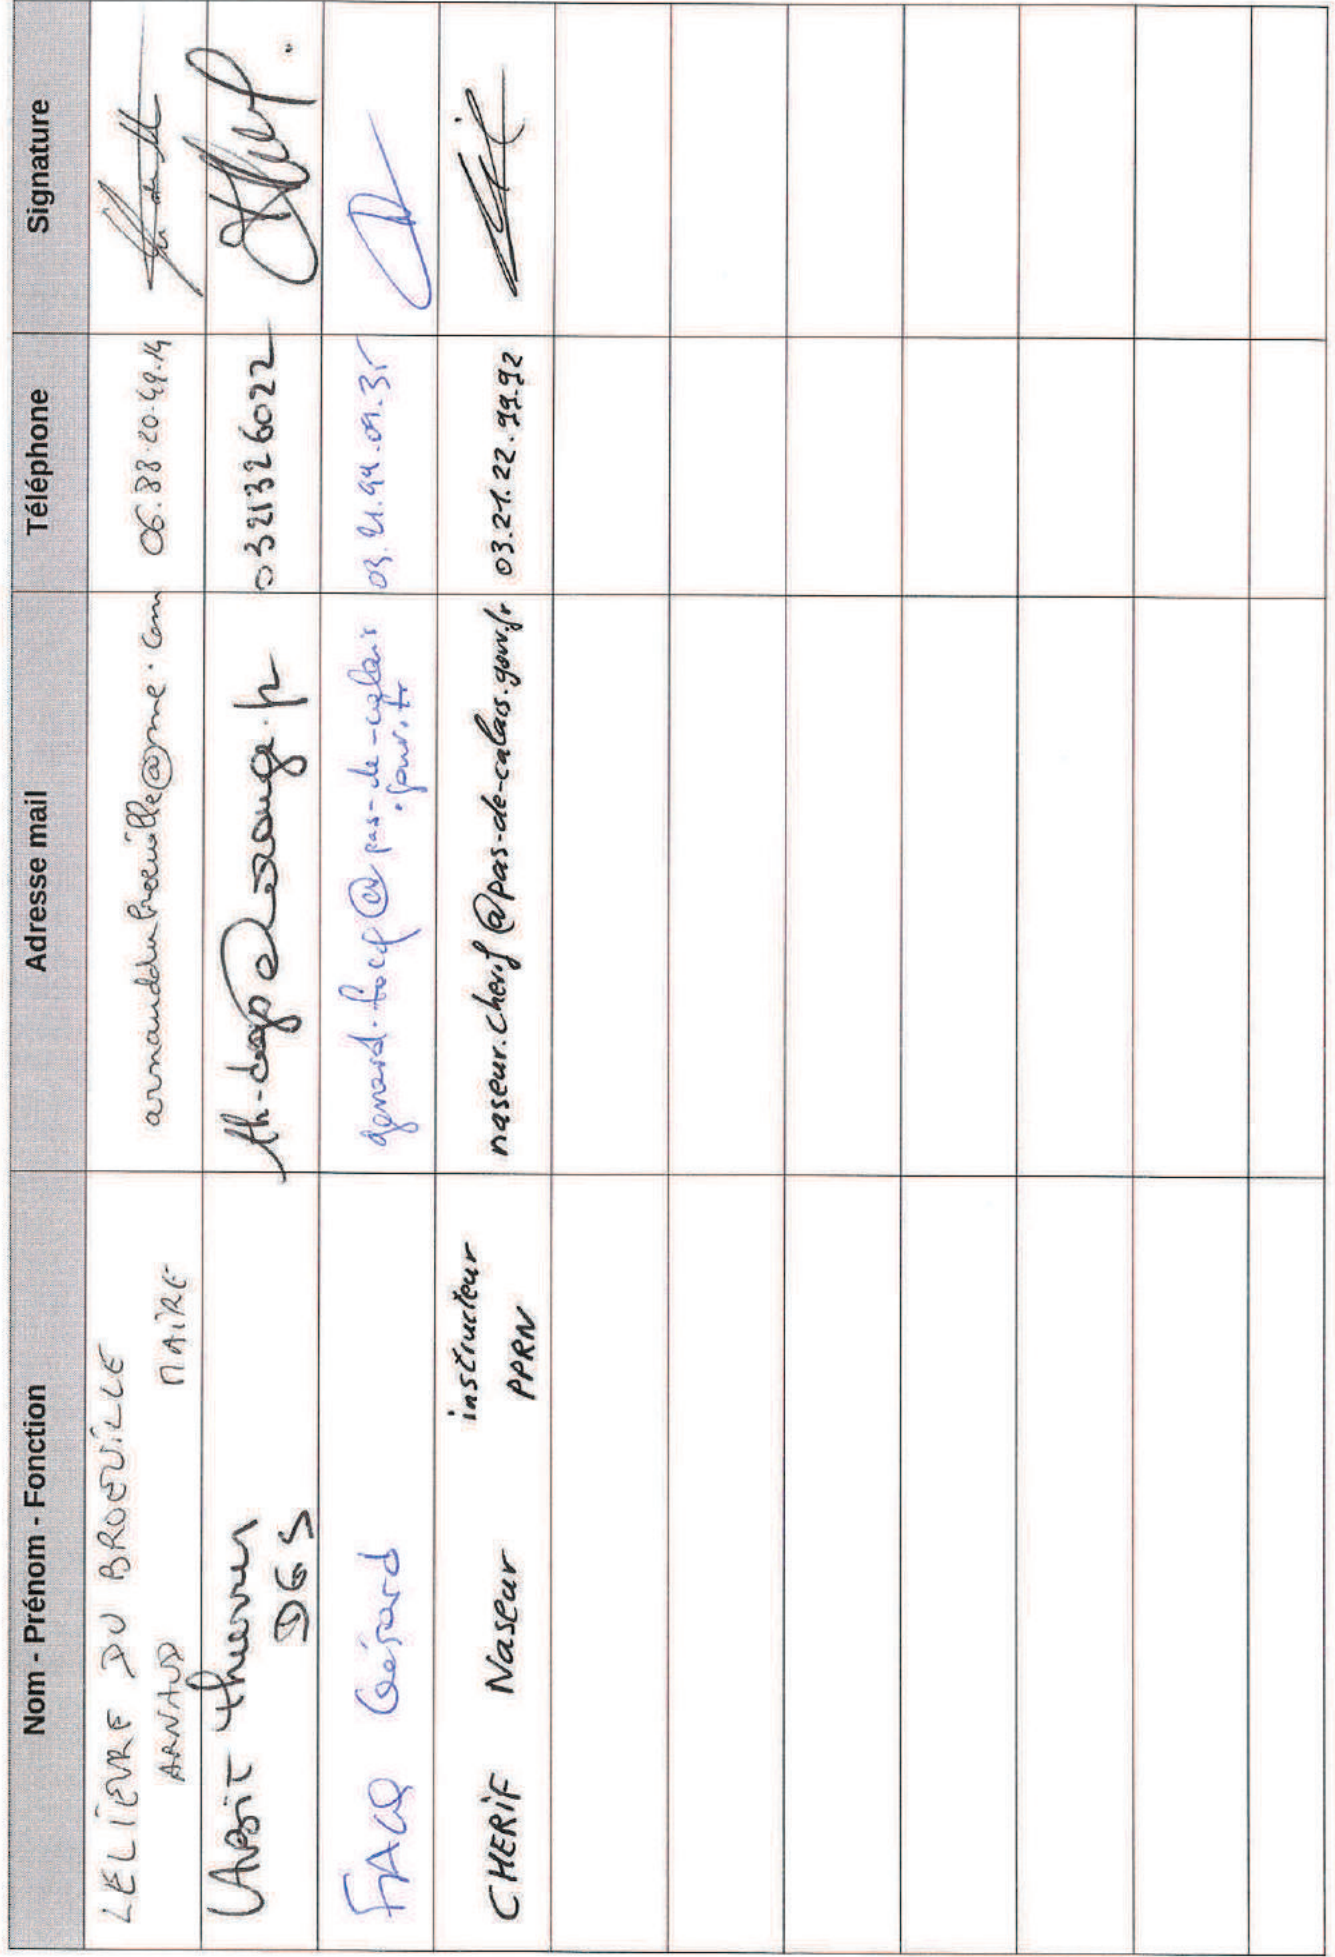 Nom - Prénom - Fonction
Adresse mail
Téléphone
Signature
LELIEVRE DU BROEUILLE
ARNAUD MAIRE
06.88.20.49.14
Thierry
DGS
0321326022
FACQ Gérard
gerard.facq@pas-de-calais
.gouv.fr
CHERIF Naseur
instructeur
PPRN
naseur.cherif@pas-de-calais.gouv.fr
03.21.22.99.92